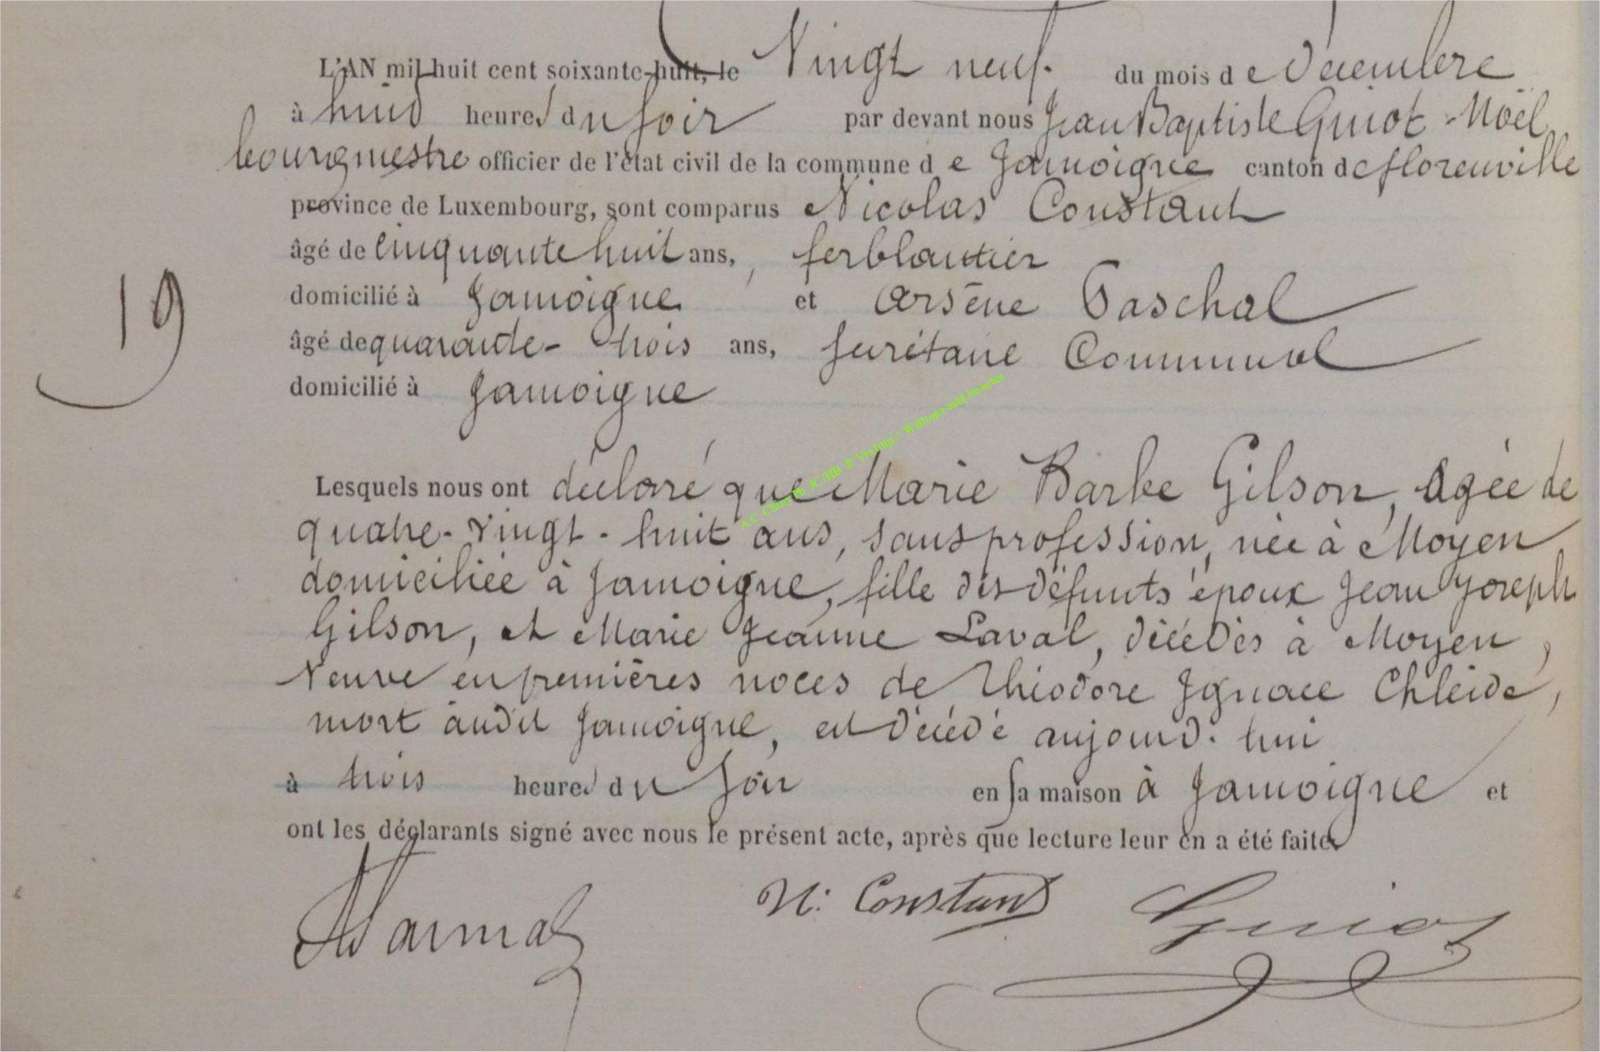 L'AN mil huit cent soixante-huit, le Vingt neuf. du mois de Décembre
à huit heures du soir par devant nous Jean Baptiste Guiot-Noël
bourgmestre officier de l'état civil de la commune de Jamoigne canton de florenville
province de Luxembourg, sont comparus Nicolas Constant
âgé de cinquante huit ans, ferblantier
domicilié à Jamoigne et Arsène Paschal
19
âgé de quarante-trois ans, secrétaire Communal
domicilié à Jamoigne
Lesquels nous ont déclaré que Marie Barbe Gilson, agée de
quatre-vingt-huit ans, sans profession, née à Moyen
domiciliée à Jamoigne, fille des défunts époux Jean Joseph
Gilson, et Marie Jeanne Laval, décédés à Moyen,
Veuve en premières noces de Théodore Ignace Chleide,
mort audit Jamoigne, est décédé aujourd'hui
à trois heures du soir en sa maison à Jamoigne et
ont les déclarants signé avec nous le présent acte, après que lecture leur en a été faite.
N: Constant Guiot